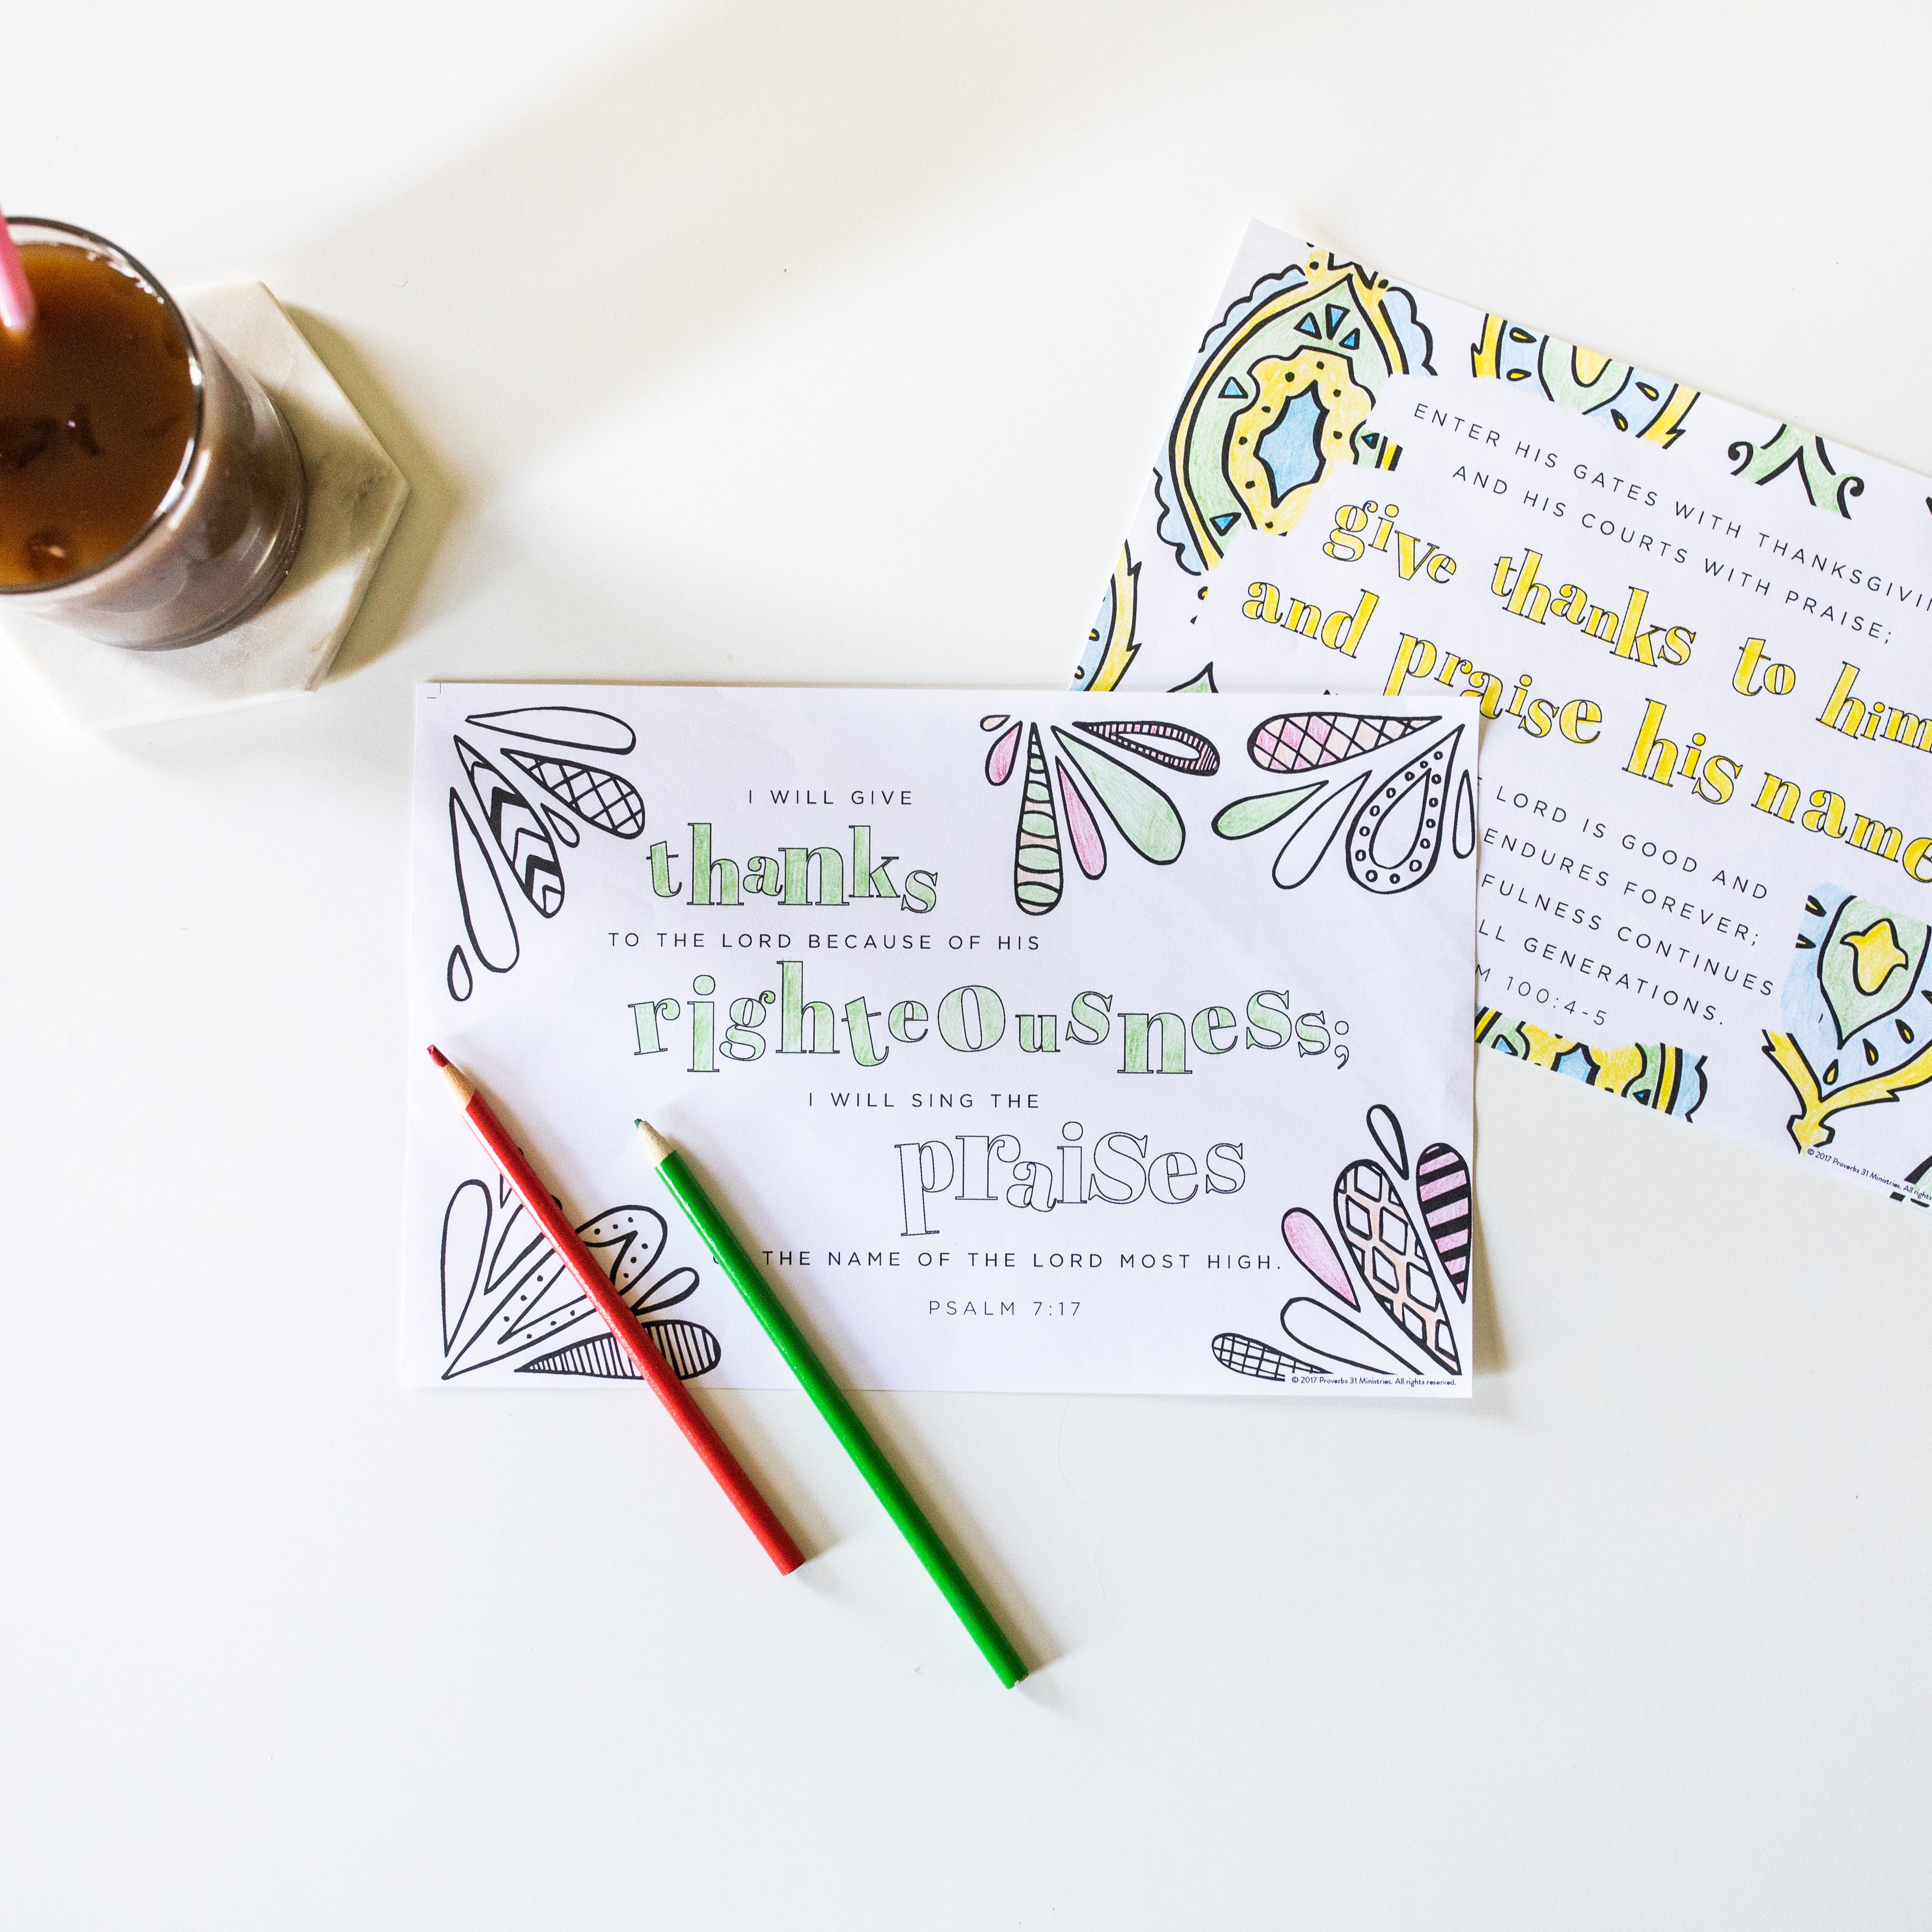 I WILL GIVE
thanks
TO THE LORD BECAUSE OF HIS
righteousness;
I WILL SING THE
praises
THE NAME OF THE LORD MOST HIGH.
PSALM 7:17
© 2017 Proverbs 31 Ministries. All rights reserved.
ENTER HIS GATES WITH
AND HIS COURTS WITH PRAISE;
give thanks to him
and praise his name
LORD IS GOOD AND
ENDURES FOREVER;
CONTINUES
GENERATIONS.
100:4-5
© 2017 Proverbs 31 Ministries. All rights